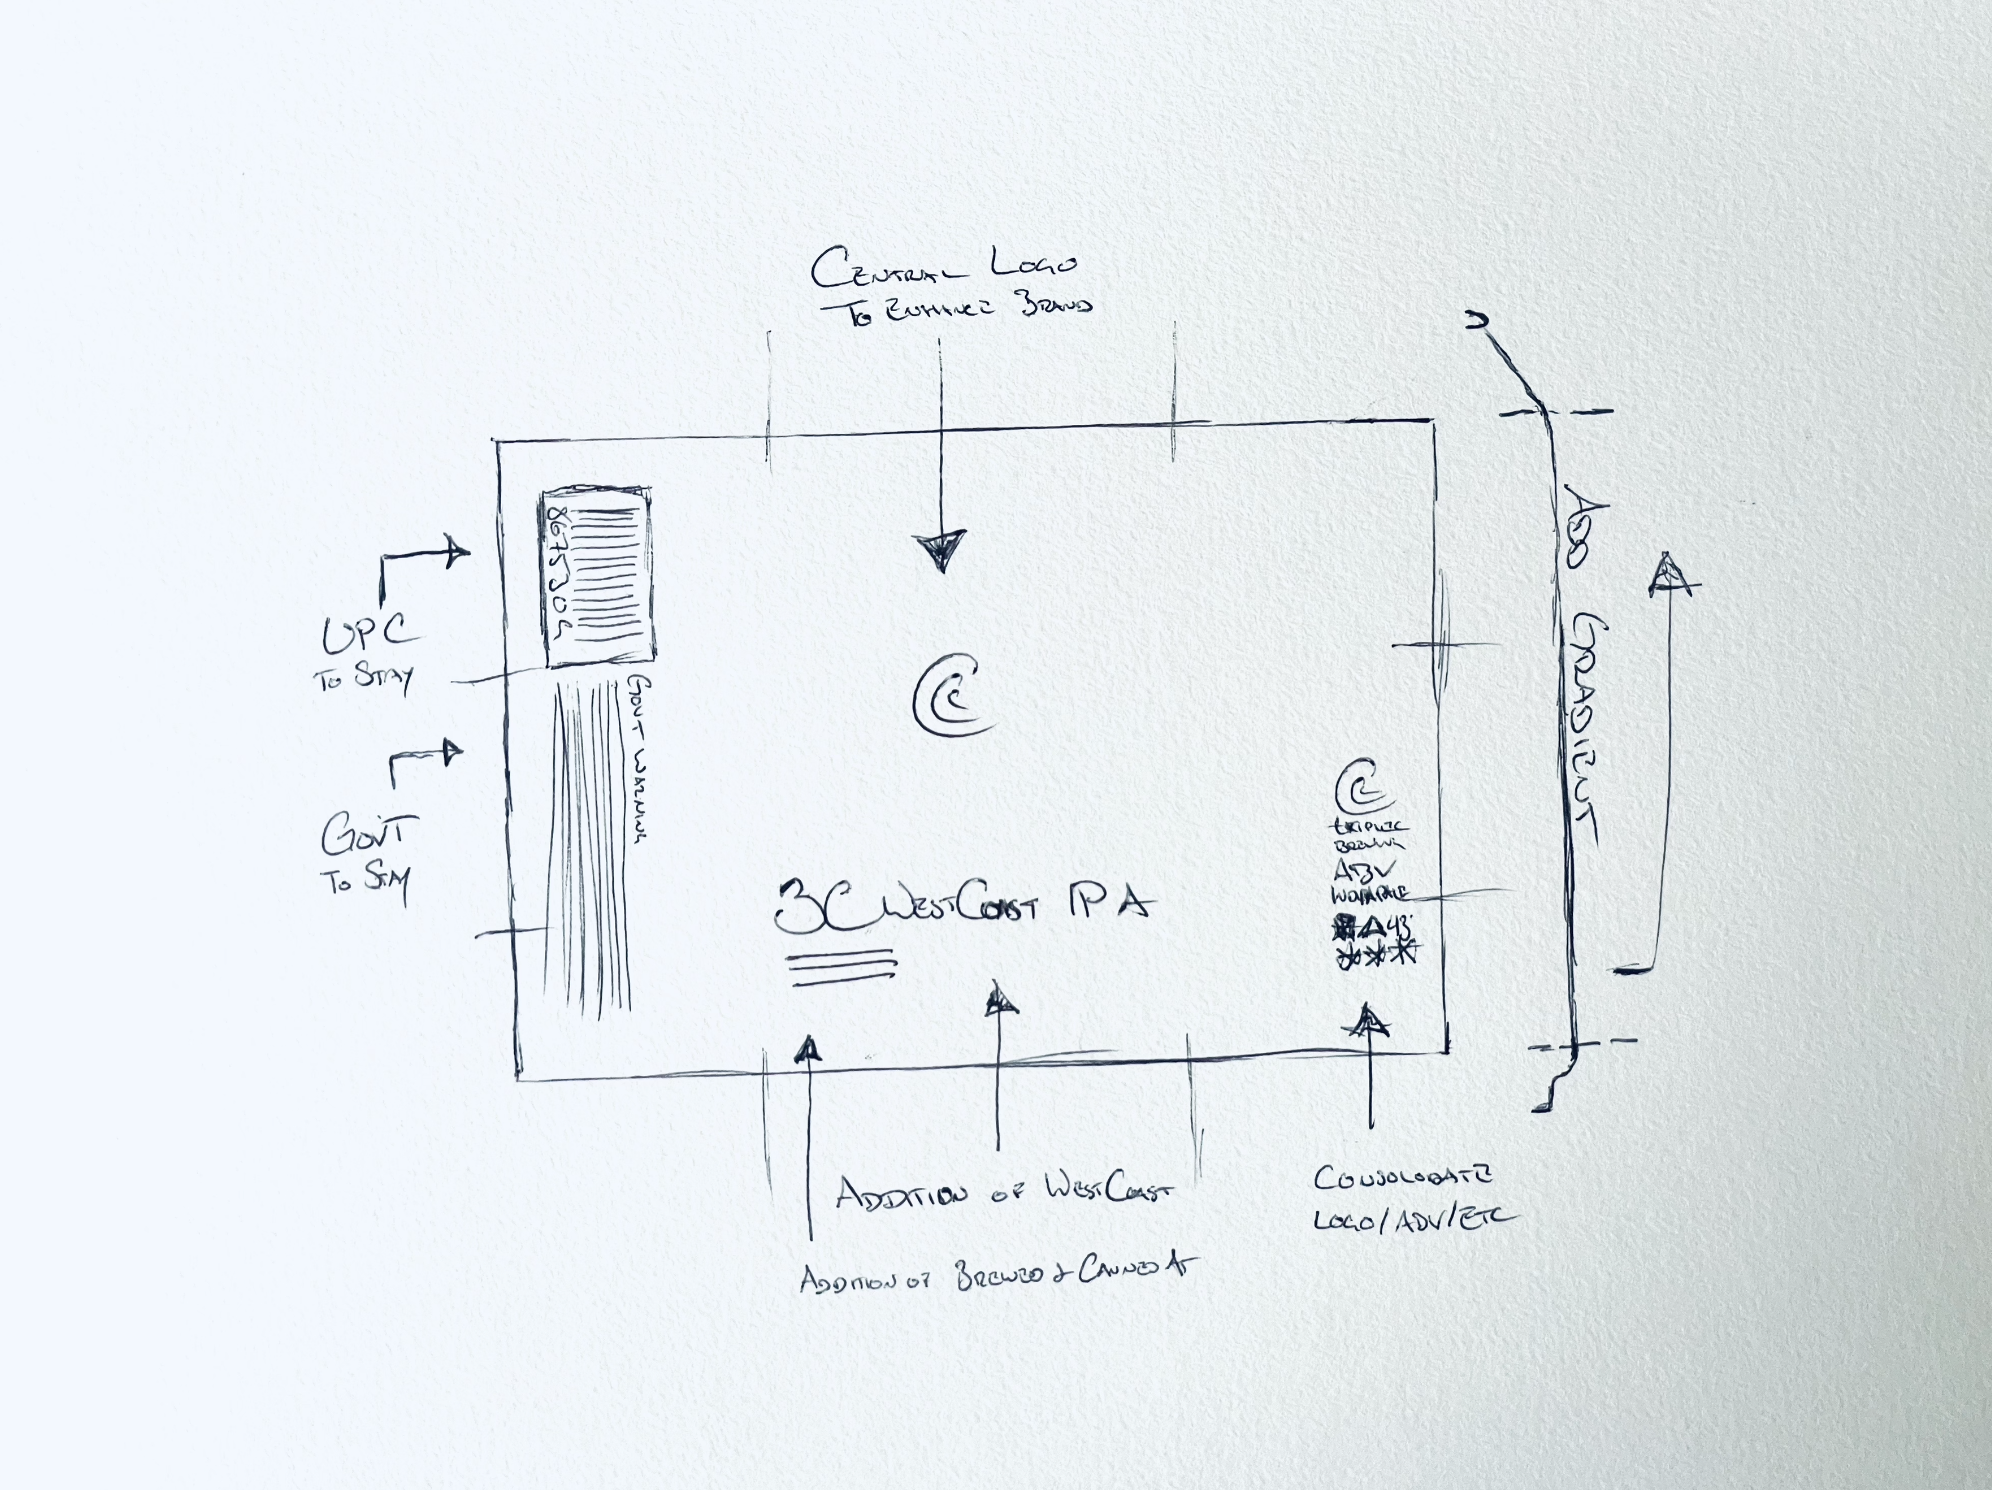 CENTRAL LOGO
TO ENHANCE BRAND
UPC
TO STAY
GOVT
TO STAY
8675309
GOVT WARNING
3C WESTCOAST IPA
BREWING
ABV
ADD GRADIENT
ADDITION OF WESTCOAST
ADDITION OF BREWED & CANNED AT
CONSOLODATE
LOGO/ADV/ETC